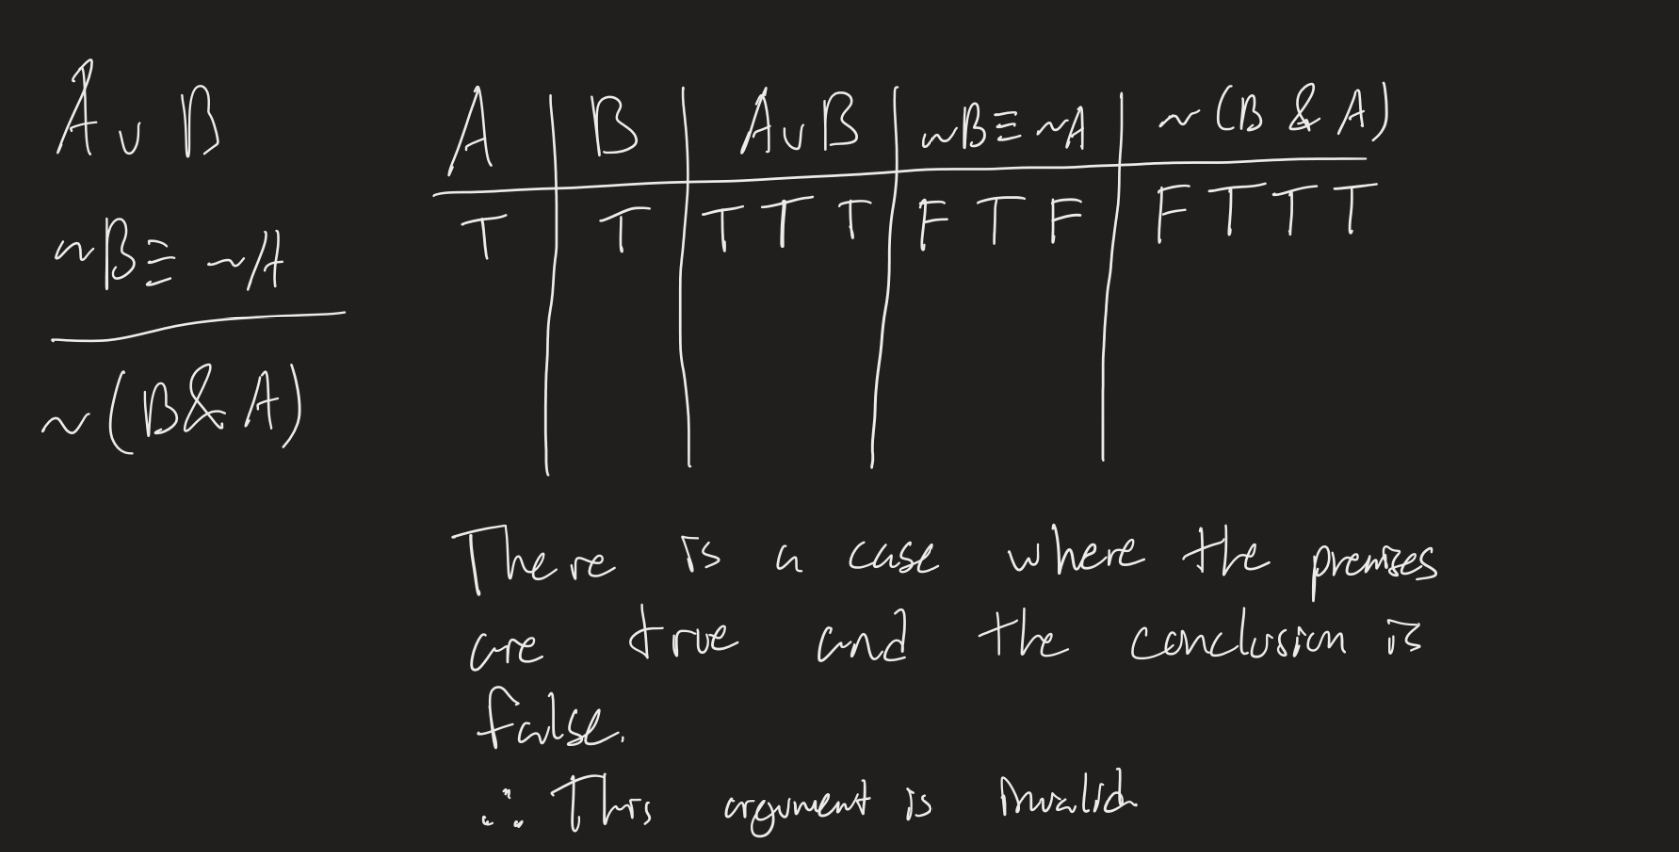 A ∨ B
~B ≡ ~A
~(B & A)
A | B | A ∨ B | ~B ≡ ~A | ~(B & A)
T | T | T T T | F T F | F T T T
There is a case where the premises
are true and the conclusion is
false.
∴ This argument is invalid